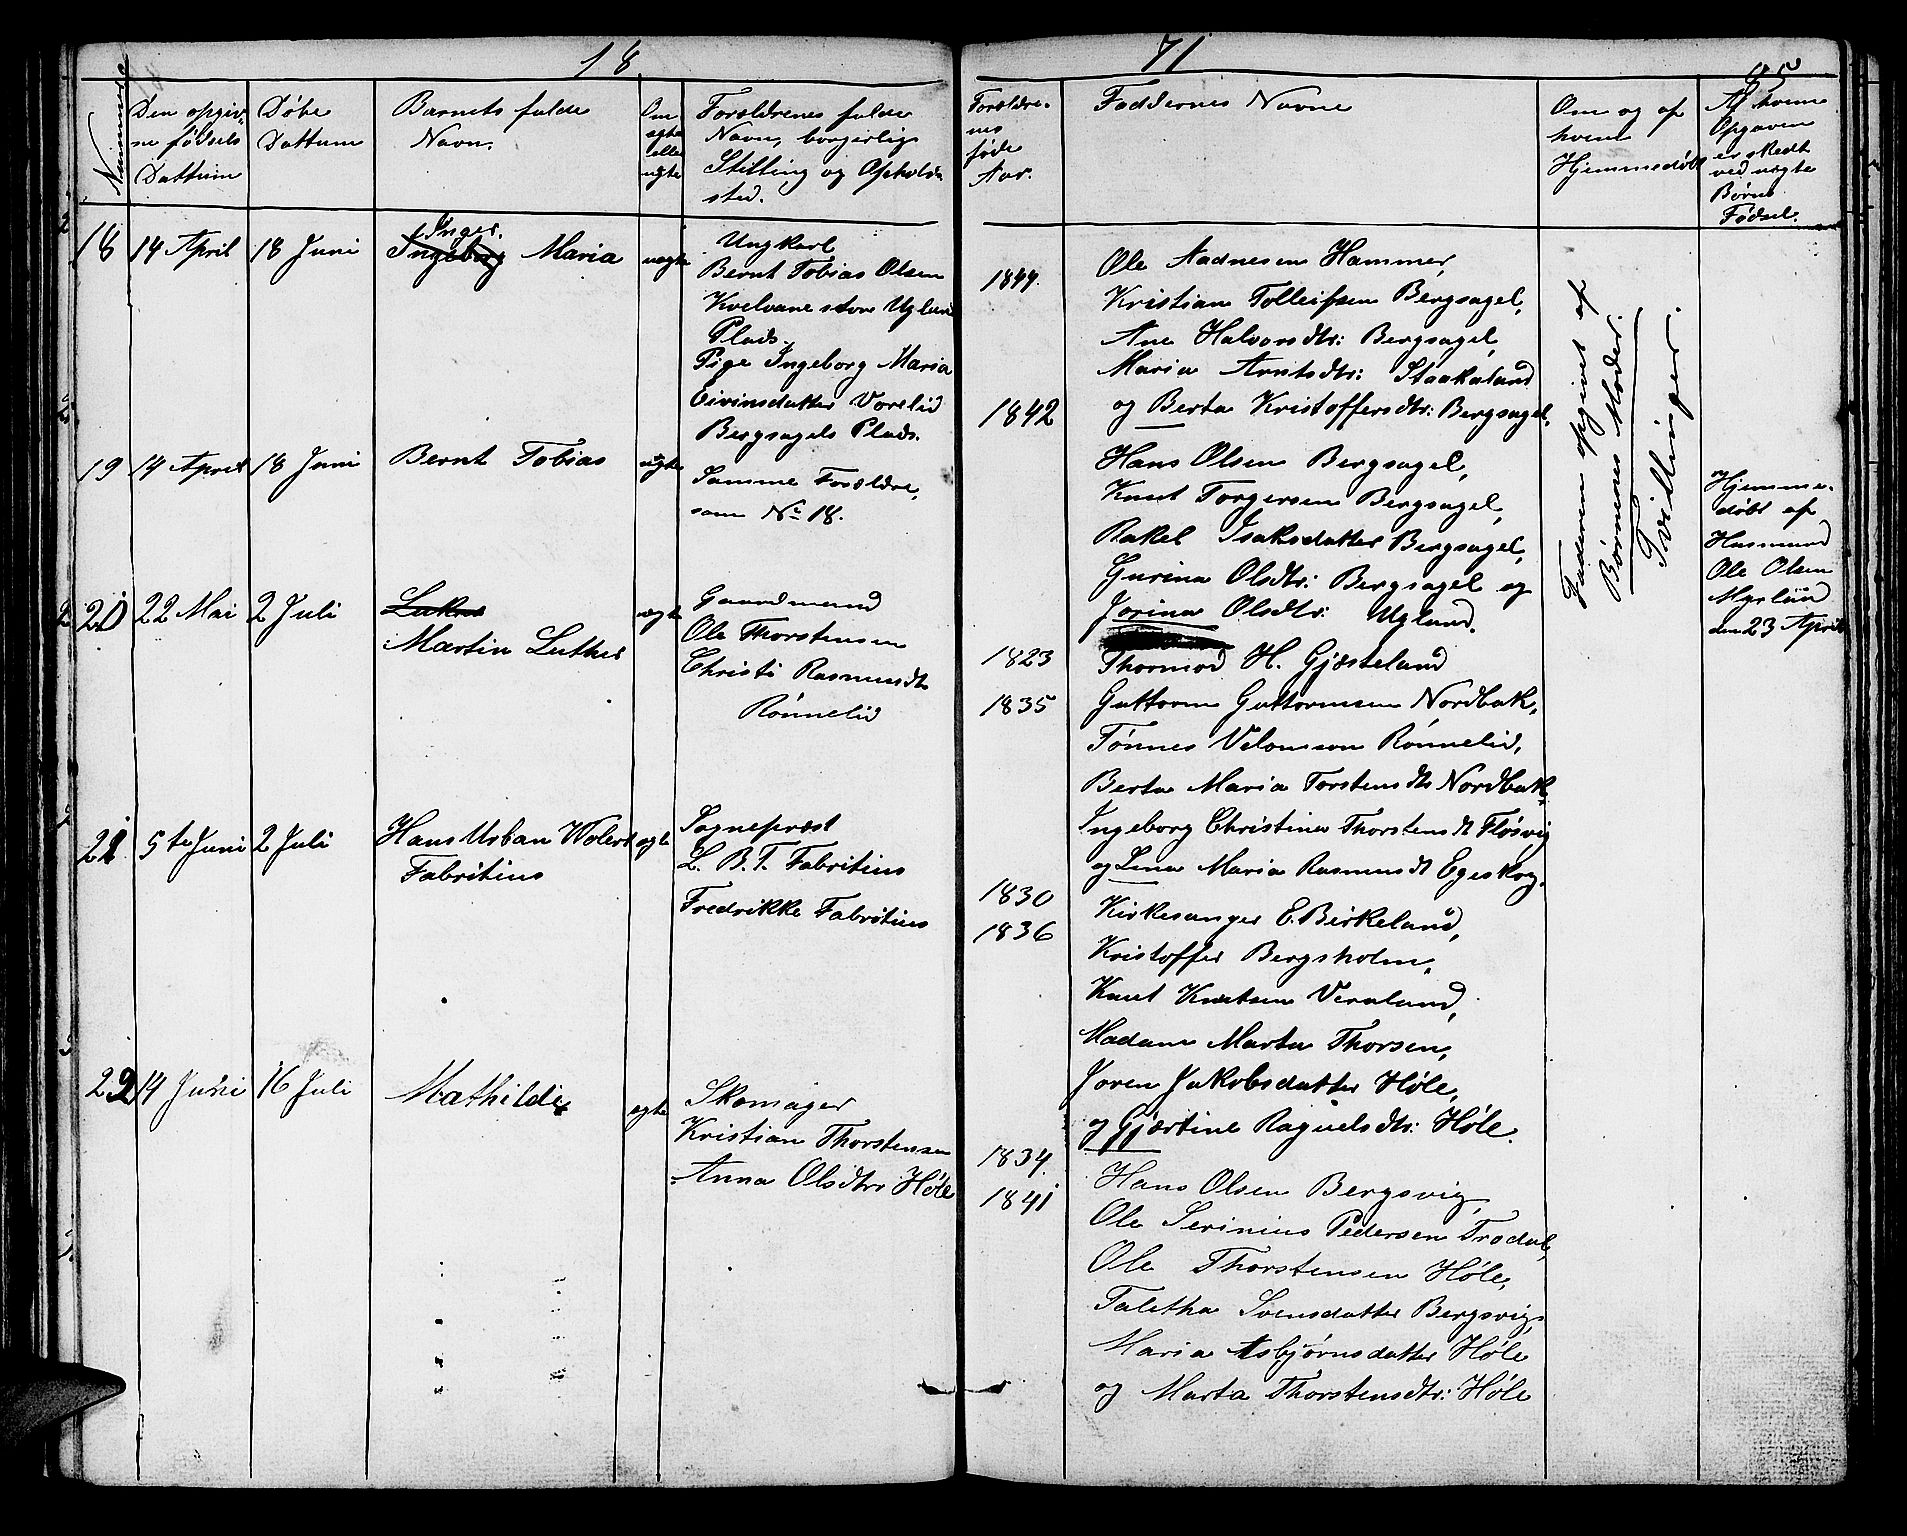 18 71
85
Nummer
Den opgiv-
ne fødsels
Dattum
Døbe
Dattum
Barnets fulde
Navn.
Om
egte
eller
uegte
Forældrenes fulde
Navn, borgerlig
Stilling og Opholds
sted.
Forældre-
nes
føde
Aar.
Faddernes Navne
Om og af
hvem
Hjemmedøbt
Af hvem
Opgaven
er skedt
ved uegte
Børns
Fødsel.
18 14 April 18 Juni
Inger.
Ingeborg Maria
uegte
Ungkarl
Bernt Tobias Olsen
Plads.
Pige Ingeborg Maria
Eivinsdatter Vorelid
Bergsagels Plads.
1844.
1842
Ole Aadnesen Hammer,
Kristian Tolleifsen Bergsagel,
Ane Halvorsdtr: Bergsagel,
Maria Arntsdtr: Staakaland
og Berta Kristoffersdtr: Bergsagel.
Faderen opgivet af
Børnenes Moder.
Tvillinger.
19 14 April 18 Juni
Bernt Tobias
uegte
Samme Forældre,
som No 18.
Hans Olsen Bergsagel,
Knut Torgersen Bergsagel,
Rakel Isaksdatter Bergsagel,
Gurina Olsdtr: Bergsagel og
Jorina Olsdtr: Ugland.
og
Hjemme-
døbt af
Husmand
Ole Olsen
Myrlid
den 23 April
20 22 Mai 2 Juli
Martin Luther
egte
Gaardmand
Ole Thorstensen
Christi Rasmusdtr
Rønnelid
1823
1835
Thormod H. Gjesteland
Guttorm Guttormsen Nordbak,
Tønnes Velomson Rønnelid,
Berta Maria Torstensdtr Nordbak,
Ingeborg Christine Thorstensdt Fløsvig
og Lina Maria Rasmusdt Egeskog.
21 5te Juni 2 Juli
Hans Urban Wolert
Fabritius
egte
Sogneprest
L. B. T. Fabritius
Fredrikke Fabritius
1830
1836
Kirkesanger E. Birkeland,
Kristoffer Bergsholm,
Knut Knutsen Veraland,
Madam Marta Thorsen,
Joren Jakobsdatter Høle,
og Gjertine Raguelsdtr: Høle.
22 14 Juni 16 Juli
Mathilde
egte
Skomager
Kristian Thorstensen
Anna Olsdtr Høle
1834
1841
Hans Olsen Bergsvig,
Ole Serinius Pedersen Trodal,
Ole Thorstensen Høle,
Taletha Svensdatter Bergsvig,
Maria Asbjørnsdatter Høle
og Marta Thorstensdtr: Høle